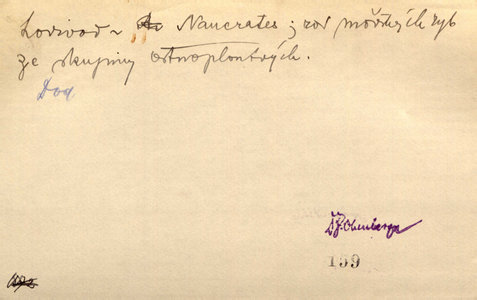 Lodivod ~ Naucrates; rod mořských ryb
ze skupiny ostnoploutvých.
Dod
Dr. J. Obenberger
139